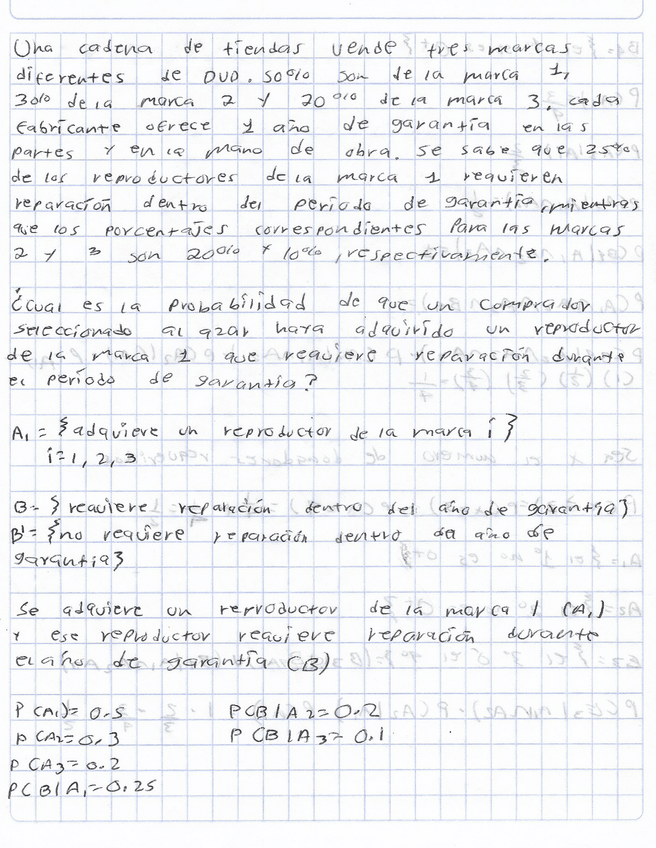 Una cadena de tiendas vende tres marcas
diferentes de DVD. 50% son de la marca 1,
30% de la marca 2 y 20% de la marca 3. cada
fabricante ofrece 1 año de garantía en las
partes y en la mano de obra. se sabe que 25%
de los reproductores de la marca 1 requieren
reparación dentro del período de garantía, mientras
que los porcentajes correspondientes para las marcas
2 y 3 son 20% y 10%, respectivamente.
¿cual es la probabilidad de que un comprador
seleccionado al azar haya adquirido un reproductor
de la marca 1 que requiere reparación durante
el período de garantía?
A₁ = {adquiere un reproductor de la marca i}
i=1, 2, 3
B= {requiere reparación dentro del año de garantía}
B'= {no requiere reparación dentro del año de
garantía}
Se adquiere un reproductor de la marca 1 (A₁)
y ese reproductor requiere reparación durante
el año de garantía (B)
P(A₁)= 0.5 P(B|A2=0.2
P(A2=0.3 P(B|A3=0.1
P(A3=0.2
P(B|A₁=0.25